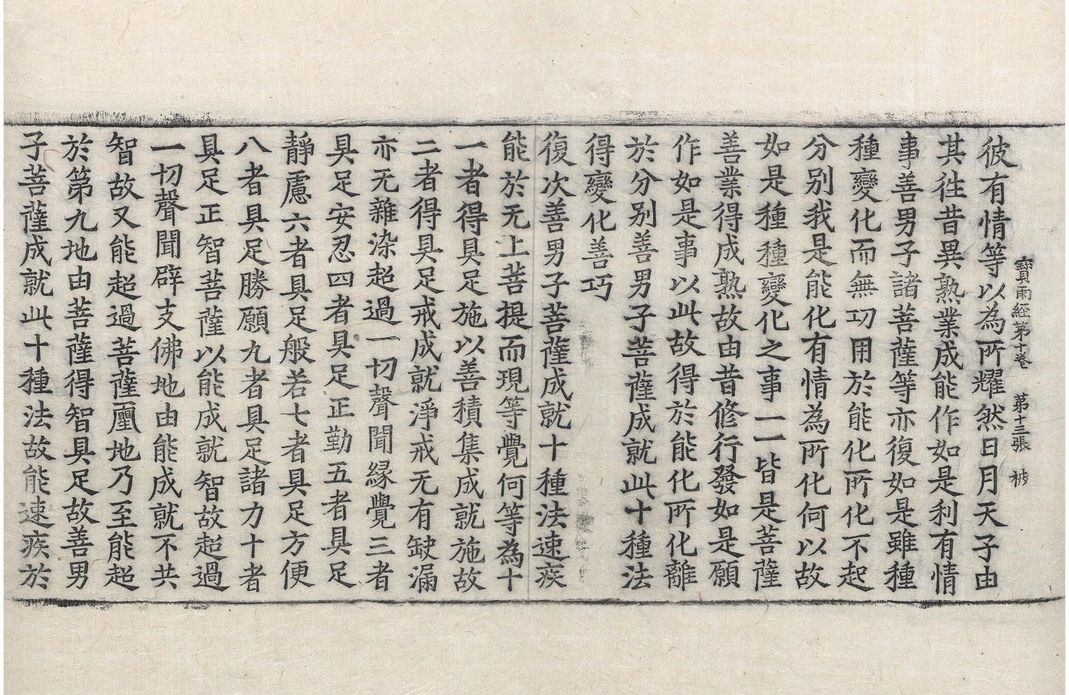 寶雨經第十卷　第十三張　被
彼有情等以為所耀然日月天子由
其徃昔異熟業成能作如是利有情
事善男子諸菩薩等亦復如是雖種
種變化而無功用於能化所化不起
分別我是能化有情為所化何以故
如是種種變化之事一一皆是菩薩
善業得成熟故由昔修行發如是願
作如是事以此故得於能化所化離
於分別善男子菩薩成就此十種法
得變化善巧
復次善男子菩薩成就十種法速疾
能於无上菩提而現等覺何等為十
一者得具足施以善積集成就施故
二者得具足戒成就淨戒无有缺漏
亦无雜染超過一切聲聞緣覺三者
具足安忍四者具足正勤五者具足
靜慮六者具足般若七者具足方便
八者具足勝願九者具足諸力十者
具足正智菩薩以能成就智故超過
一切聲聞辟支佛地由能成就不共
智故又能超過菩薩㕓地乃至能超
於第九地由菩薩得智具足故善男
子菩薩成就此十種法故能速疾於